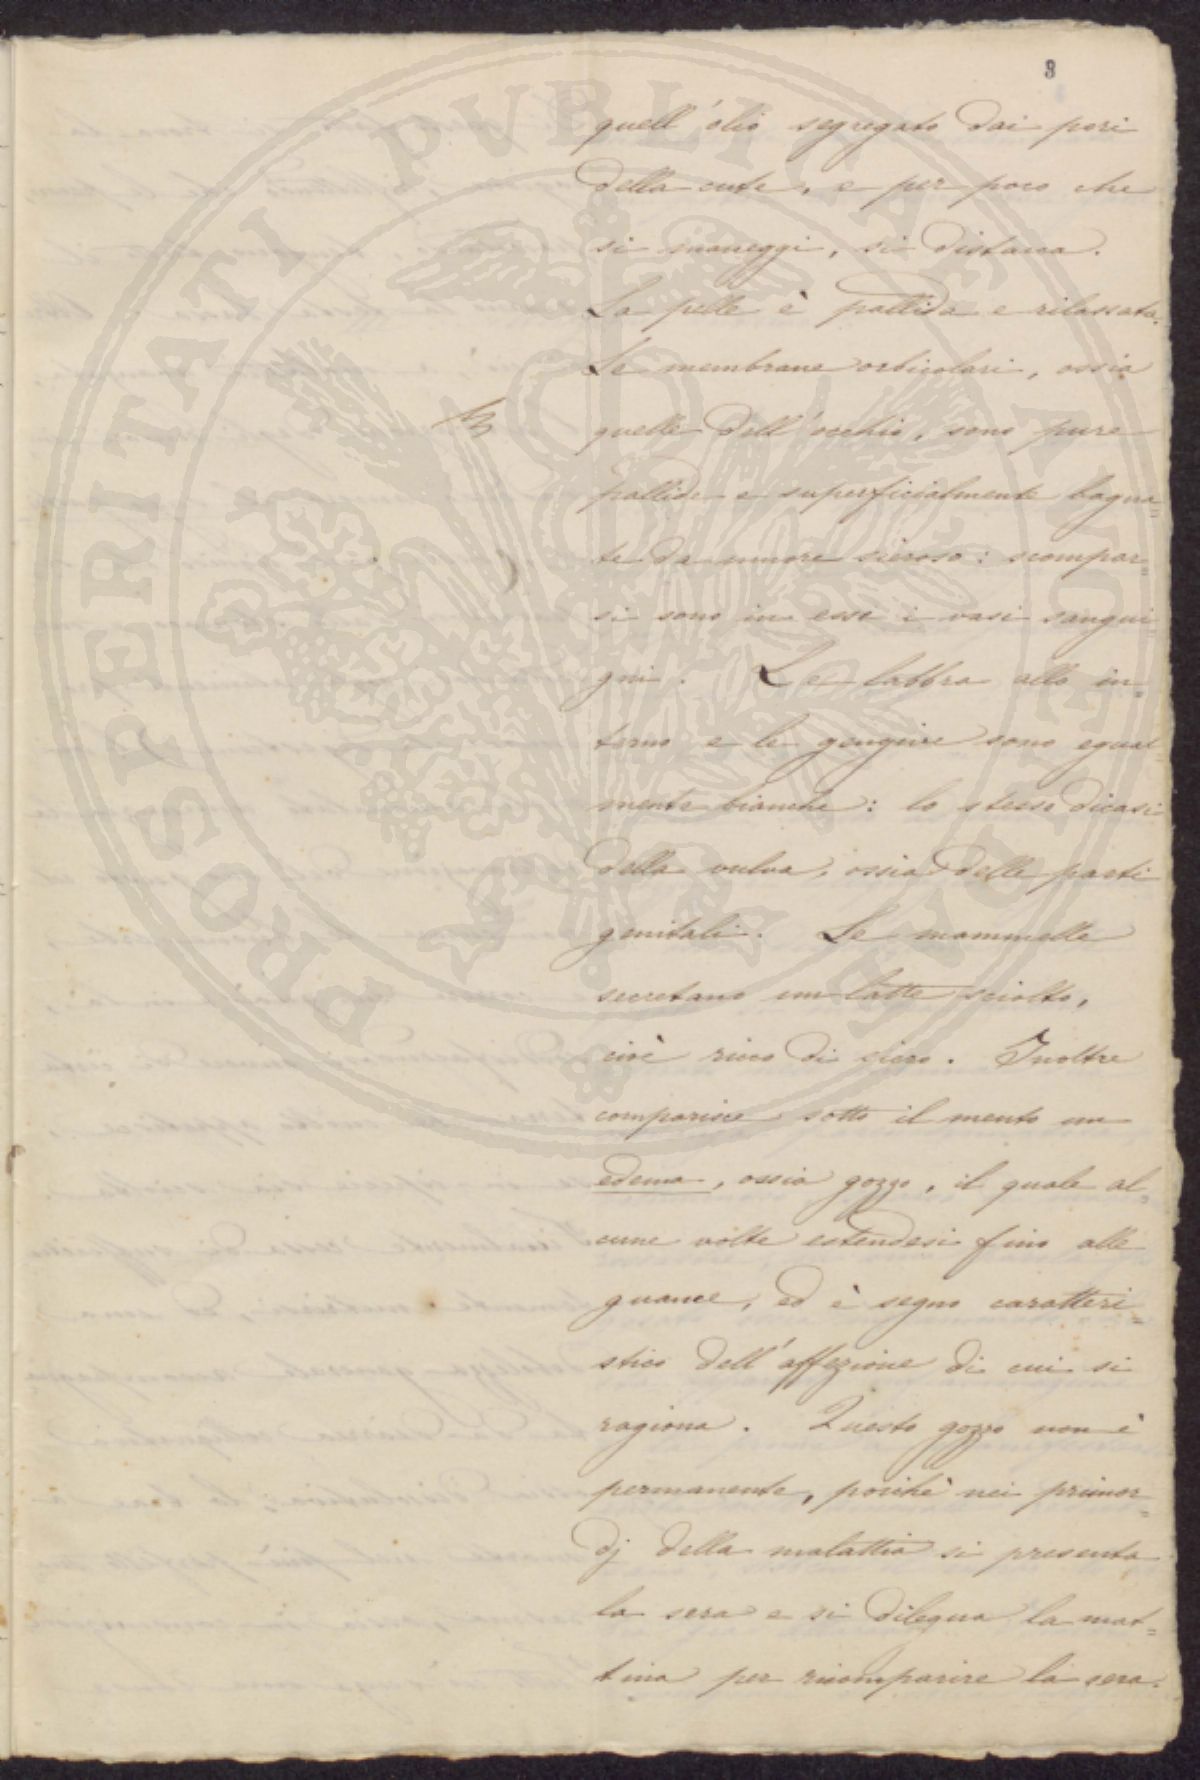 PROSPERITATI PVBLICAE AVGENDAE
3
quell'olio segregato dai pori
della cute, e per poco che
si maneggi, si distacca.
La pelle è pallida e rilassata.
Le membrane orbicolari, ossia
quelle dell'occhio, sono pure
pallide e superficialmente bagna=
te da umore sieroso: scompar=
si sono in esse i vasi sangui=
gni. Le labbra allo in=
terno e le gengive sono egual=
mente bianche: lo stesso dicasi
della vulva, ossia delle parti
genitali. Le mammelle
secretano un latte sciolto,
cioè ricco di siero. Inoltre
comparisce sotto il mento un
edema, ossia gozzo, il quale al=
cune volte estendesi fino alle
guance, ed è segno caratteri=
stico dell'affezione di cui si
ragiona. Questo gozzo non è
permanente, poichè nei primor=
dj della malattia si presenta
la sera e si dilegua la mat=
tina per ricomparire la sera.